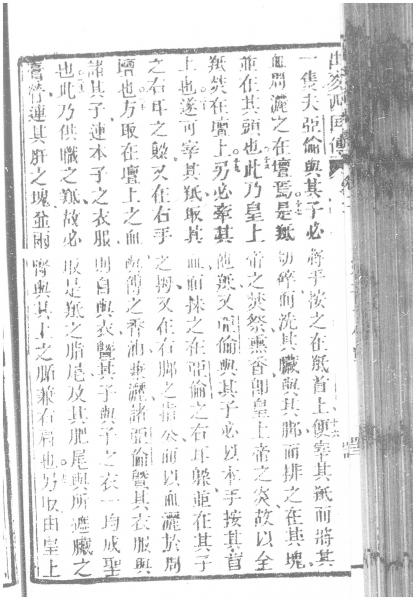 出麥西國傳
一隻夫亞倫與其子必將手按之在羝首上便宰其羝而將其
血周灑之在壇焉是羝切碎而洗其臟與其脚而排之在其塊
並在其頭也此乃皇上帝之焚祭熏香卽皇上帝之炙故以全
羝焚在壇上另必牽其他羝又亞倫與其子必以本手按其首
上也遂可宰其羝取其血而抹之在亞倫之右耳躲並在其子
之右耳之躲又在右手之拇又在右脚之指公而以血灑於周
壇也方取在壇上之血與傅之香油垂灑諸亞倫曁其衣服與
諸其子連本子之衣服則自與衣曁其子與子之衣一均成聖
也此乃供職之羝故必取是羝之脂尾及其肥尾與所遮臟之
膏幷連其肝之塊並兩腎與其上之脂兼右肩也另取由皇上